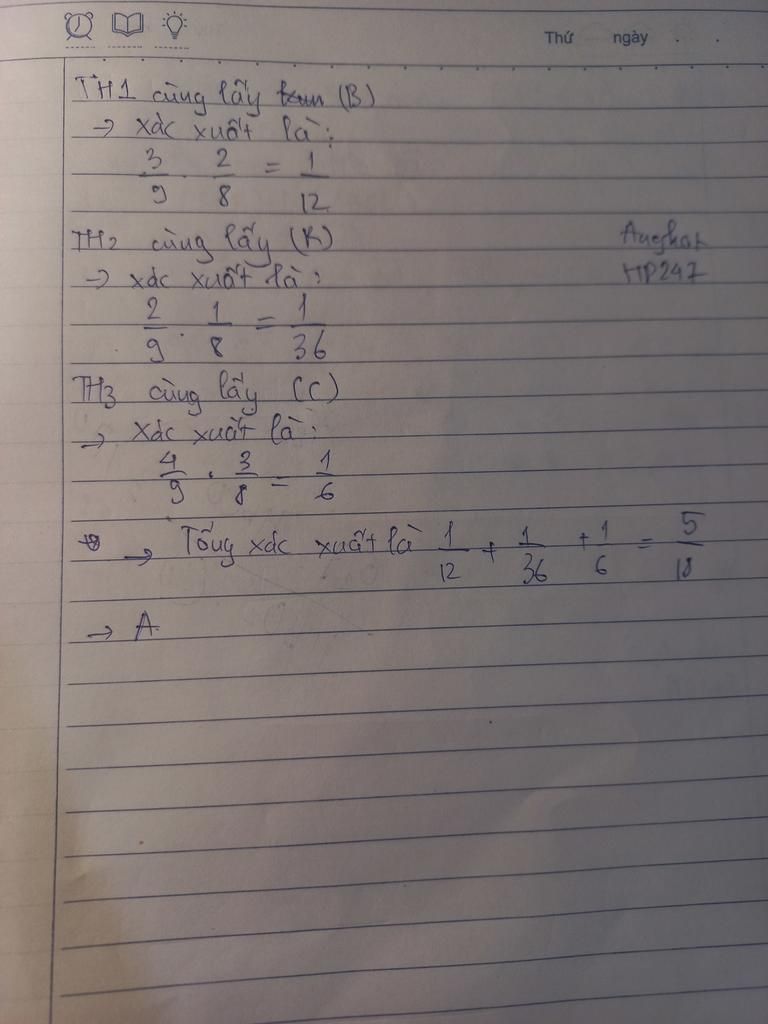 Thứ ngày . .
TH1 cùng lấy (B)
→ xác xuất là:
3/9 . 2/8 = 1/12
TH2 cùng lấy (K)
→ xác xuất là:
2/9 . 1/8 = 1/36
Aughar
HP247
TH3 cùng lấy (C)
→ xác xuất là:
4/9 . 3/8 = 1/6
→ Tổng xác xuất là 1/12 + 1/36 + 1/6 = 5/18
→ A